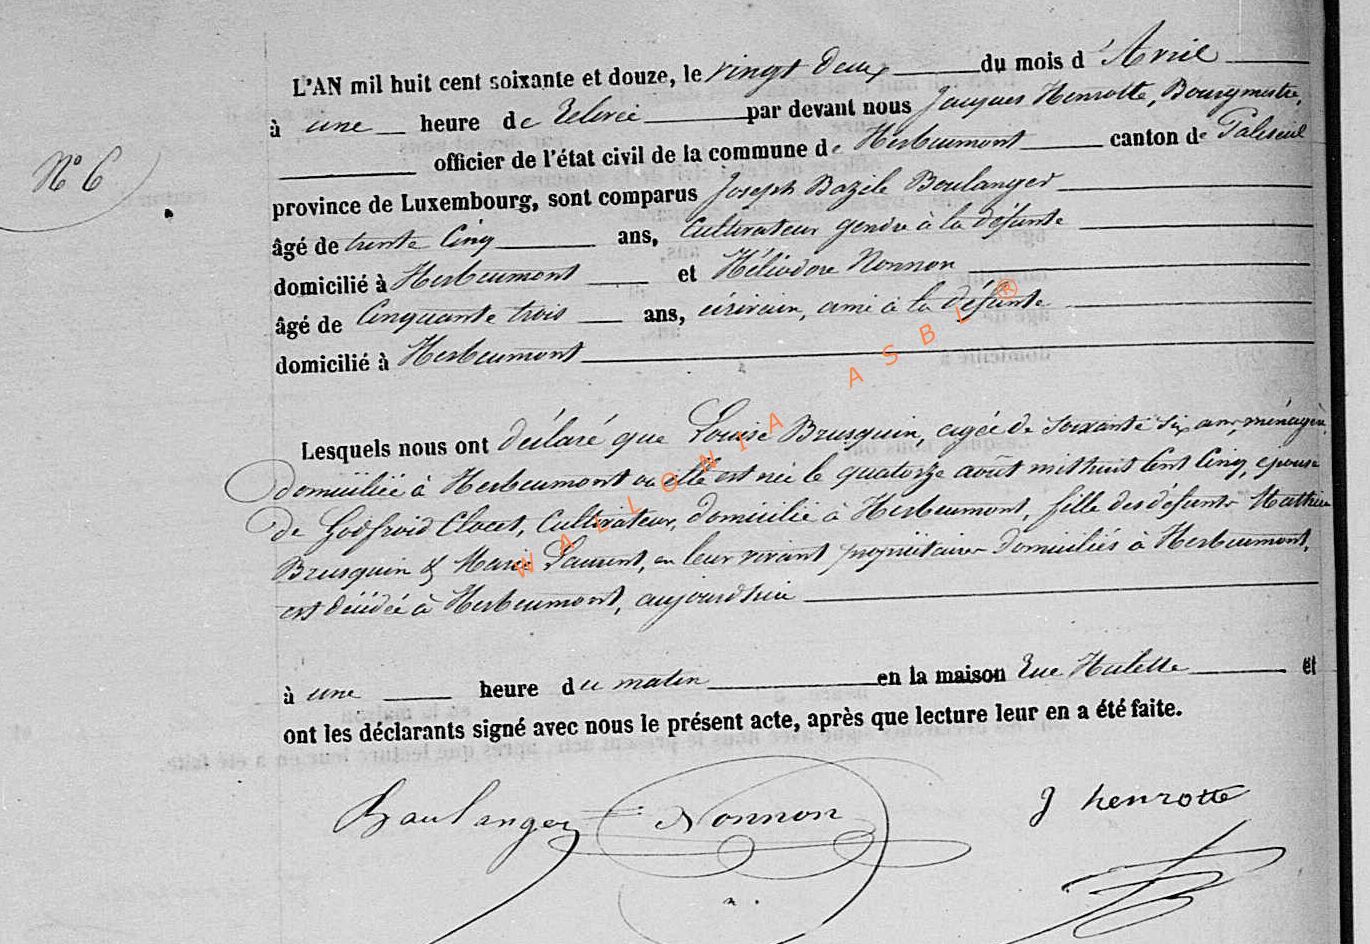 L'AN mil huit cent soixante et douze, le vingt deux du mois d'Avril
à une heure de relevée par devant nous Jacques Henrotte, Bourgmestre,
officier de l'état civil de la commune de Herbeumont canton de Paliseul
N° 6
province de Luxembourg, sont comparus Joseph Bazile Boulanger
âgé de trente Cinq ans, Cultivateur gendre à la défunte
domicilié à Herbeumont et Héliodore Nonnon
âgé de Cinquante trois ans, écrivain, ami à la défunte
domicilié à Herbeumont
Lesquels nous ont déclaré que Louise Brusquin, agée de soixante six ans, ménagère
domiciliée à Herbeumont où elle est née le quatorze août mil huit Cent Cinq, épouse
de Godfroid Clacet, Cultivateur, domicilié à Herbeumont, fille des défunts Mathieu
Brusquin & Marie Laurent, en leur vivant propriétaires domiciliés à Herbeumont,
est décédée à Herbeumont, aujourd'hui
à une heure du matin en la maison Rue et
ont les déclarants signé avec nous le présent acte, après que lecture leur en a été faite.
Boulanger Nonnon J henrotte
WALLONIA ASBL ®